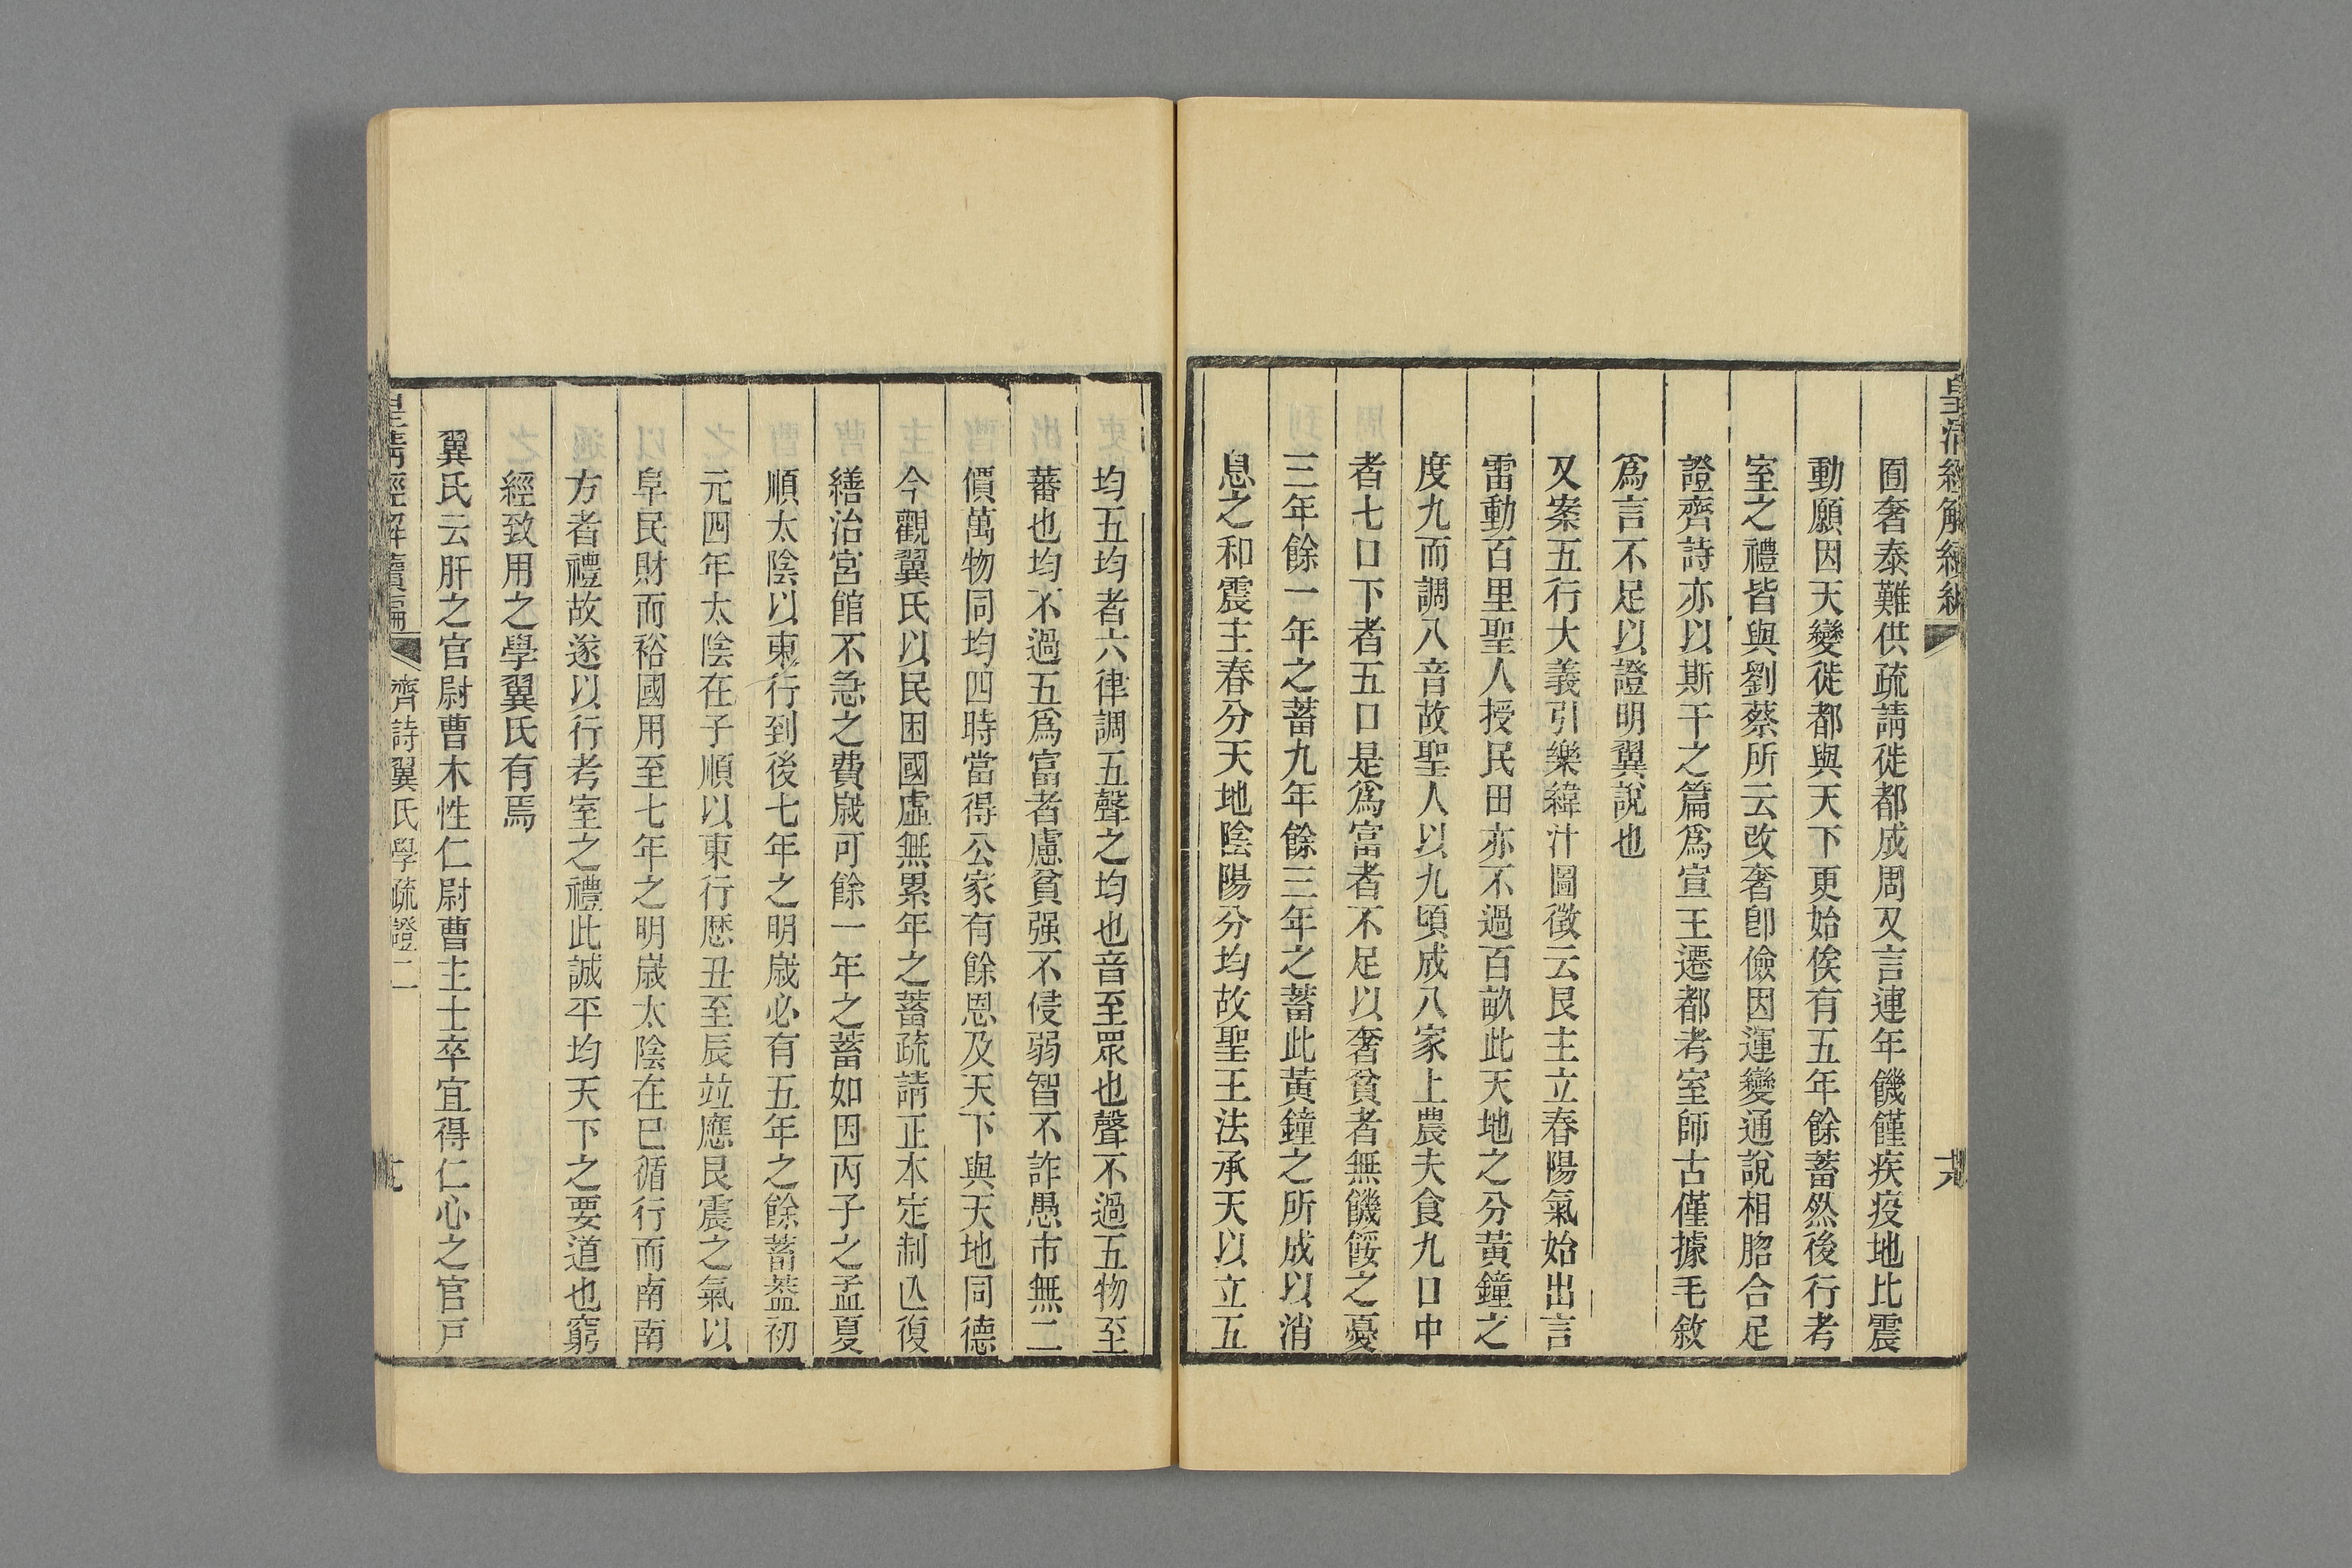 皇清經解續編
囿奢泰難供疏請徙都成周又言連年饑饉疾疫地比震
動願因天變徙都與天下更始俟有五年餘蓄然後行考
室之禮皆與劉蔡所云改奢卽儉因運變通說相脗合足
證齊詩亦以斯干之篇爲宣王遷都考室師古僅據毛敘
爲言不足以證明翼說也
又案五行大義引樂緯汁圖徵云艮主立春陽氣始出言
雷動百里聖人授民田亦不過百畝此天地之分黃鐘之
度九而調八音故聖人以九頃成八家上農夫食九口中
者七口下者五口是爲富者不足以奢貧者無饑餒之憂
三年餘一年之蓄九年餘三年之蓄此黃鐘之所成以消
息之和震主春分天地陰陽分均故聖王法承天以立五
均五均者六律調五聲之均也音至眾也聲不過五物至
蕃也均不過五爲富者慮貧强不侵弱智不詐愚市無二
價萬物同均四時當得公家有餘恩及天下與天地同德
今觀翼氏以民困國虛無累年之蓄疏請正本定制亾復
繕治宮館不急之費歲可餘一年之蓄如因丙子之孟夏
順太陰以東行到後七年之明歲必有五年之餘蓄葢初
元四年太陰在子順以東行歷丑至辰竝應艮震之氣以
阜民財而裕國用至七年之明歲太陰在巳循行而南南
方者禮故遂以行考室之禮此誠平均天下之要道也窮
經致用之學翼氏有焉
翼氏云肝之官尉曹木性仁尉曹主士卒宜得仁心之官戸
皇清經解續編
齊詩翼氏學疏證二